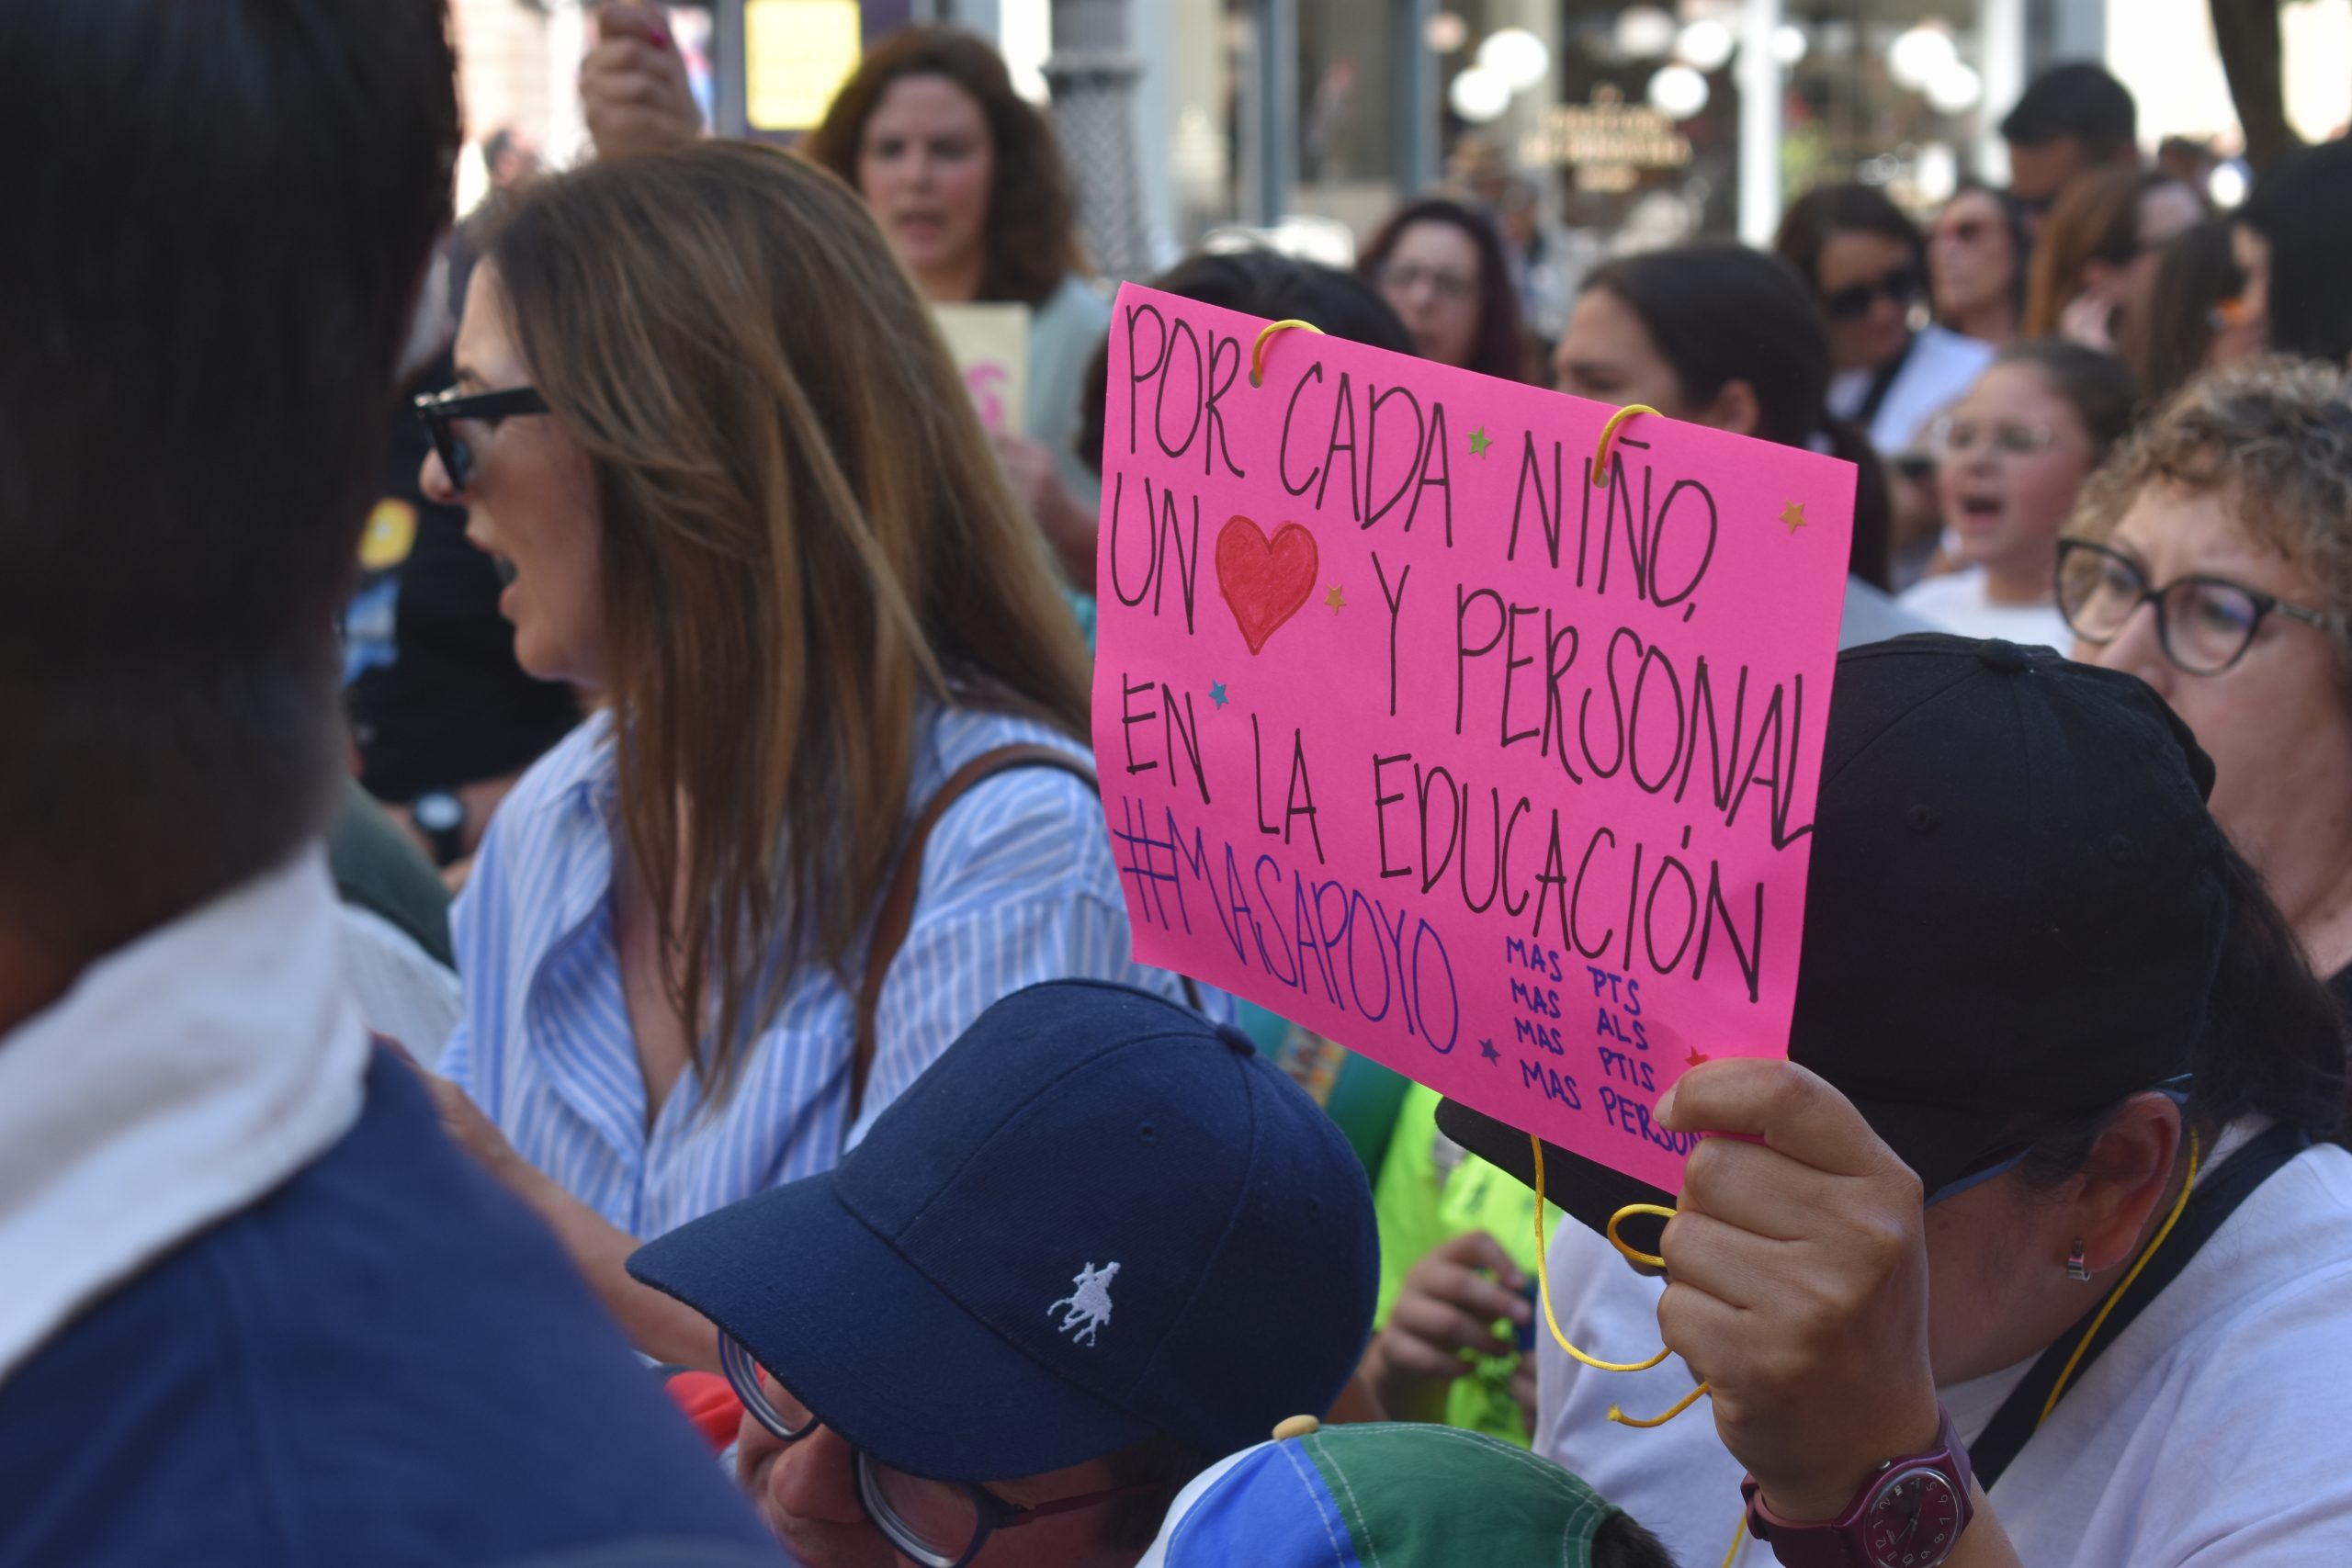 POR CADA NIÑO,
UN ❤ Y PERSONAL
EN LA EDUCACIÓN
#MASAPOYO
MAS PTS
MAS ALS
MAS PTIS
MAS PERSON